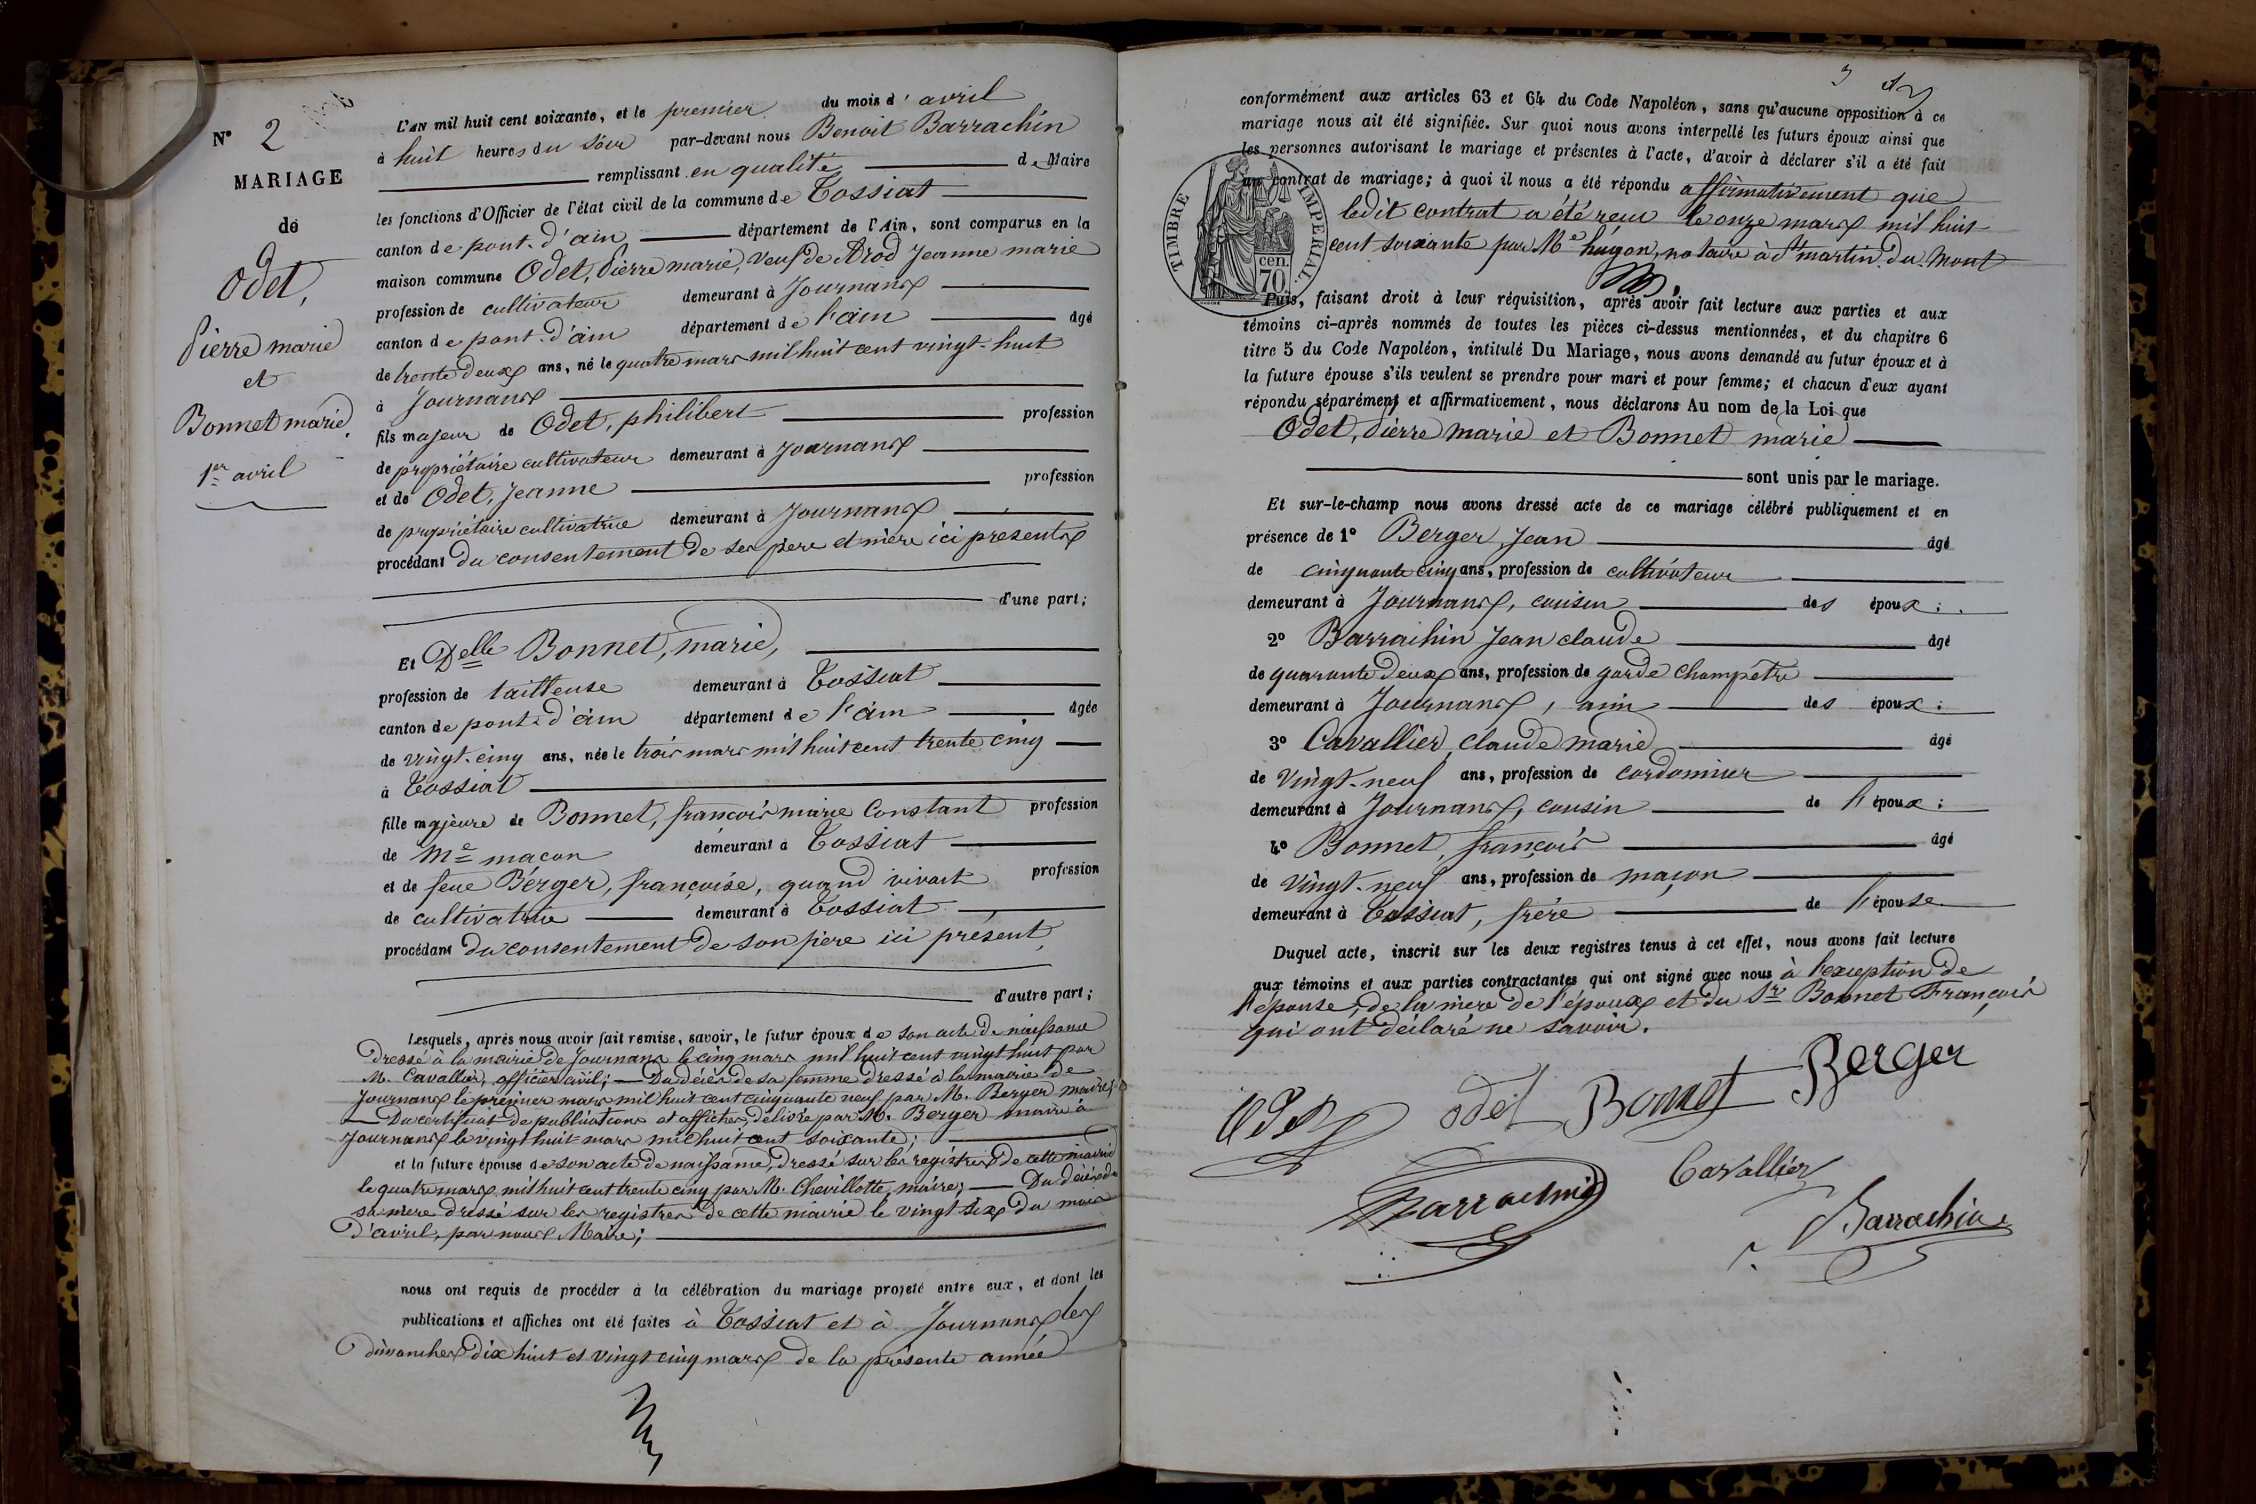 N° 2
MARIAGE
de
Odet,
Pierre marie
et
Bonnet marie
1er avril
L'AN mil huit cent soixante, et le premier du mois d'avril
à huit heures du soir par-devant nous Benoit Barrachin
remplissant en qualité de Maire
les fonctions d'Officier de l'état civil de la commune de Tossiat
canton de pont-d'ain département de l'Ain, sont comparus en la
maison commune Odet, Pierre marie, veuf de Arod Jeanne marie
profession de cultivateur demeurant à Journans
canton de pont-d'ain département de l'ain âgé
de trente deux ans, né le quatre mars mil huit cent vingt-huit
à Journans
fils majeur de Odet, philibert profession
de propriétaire cultivateur demeurant à Journans
et de Odet, Jeanne profession
de propriétaire cultivatrice demeurant à Journans
procédant du consentement de ses père et mère ici présents
d'une part;
Et Delle Bonnet, marie,
profession de tailleuse demeurant à Tossiat
canton de pont-d'ain département de l'ain âgée
de vingt-cinq ans, née le trois mars mil huit cent trente cinq
à Tossiat
fille majeure de Bonnet, françois marie Constant profession
de Me maçon demeurant à Tossiat
et de feue Berger, françoise, quand vivait profession
de cultivatrice demeurant à Tossiat
procédant du consentement de son père ici présent,
d'autre part;
Lesquels, après nous avoir fait remise, savoir, le futur époux de son acte de naissance
dressé à la mairie de Journans le cinq mars mil huit cent vingt huit par
M. Cavallier, officier civil; Du décès de sa femme dressé à la mairie de
Journans le premier mars mil huit cent cinquante neuf par M. Berger maire;
Du certificat de publications et affiches, délivré par M. Berger maire à
Journans le vingt huit mars mil huit cent soixante;
et la future épouse de son acte de naissance, dressé sur les registres de cette mairie
le quatre mars mil huit cent trente cinq par M. Chevillotte, maire; Du décès de
sa mère dressé sur les registres de cette mairie le vingt six du mois
d'avril, par nous Maire;
nous ont requis de procéder à la célébration du mariage projeté entre eux, et dont les
publications et affiches ont été faites à Tossiat et à Journans les
dimanches dix huit et vingt cinq mars de la présente année
3
conformément aux articles 63 et 64 du Code Napoléon, sans qu'aucune opposition à ce
mariage nous ait été signifiée. Sur quoi nous avons interpellé les futurs époux ainsi que
les personnes autorisant le mariage et présentes à l'acte, d'avoir à déclarer s'il a été fait
un contrat de mariage; à quoi il nous a été répondu affirmativement que
ledit contrat a été reçu le onze mars mil huit
cent soixante par Me hugon, notaire à St martin-du-Mont
TIMBRE IMPERIAL
70 cen.
Puis, faisant droit à leur réquisition, après avoir fait lecture aux parties et aux
témoins ci-après nommés de toutes les pièces ci-dessus mentionnées, et du chapitre 6
titre 5 du Code Napoléon, intitulé Du Mariage, nous avons demandé au futur époux et à
la future épouse s'ils veulent se prendre pour mari et pour femme; et chacun d'eux ayant
répondu séparément et affirmativement, nous déclarons Au nom de la Loi que
Odet, Pierre marie et Bonnet marie
sont unis par le mariage.
Et sur-le-champ nous avons dressé acte de ce mariage célébré publiquement et en
présence de 1° Berger, Jean âgé
de cinquante cinq ans, profession de cultivateur
demeurant à Journans, cousin des époux;
2° Barrachin Jean claude âgé
de quarante deux ans, profession de garde champêtre
demeurant à Journans, ami des époux;
3° Cavallier, claude marie âgé
de vingt-neuf ans, profession de cordonnier
demeurant à Journans, cousin de l'époux;
4° Bonnet, françois âgé
de vingt-neuf ans, profession de maçon
demeurant à Tossiat, frère de l'épouse
Duquel acte, inscrit sur les deux registres tenus à cet effet, nous avons fait lecture
aux témoins et aux parties contractantes qui ont signé avec nous à l'exception de
l'épouse, de la mère de l'époux et du Sr Bonnet François
qui ont déclaré ne savoir.
Odet odet Bonnet Berger
Barrachin Cavallier
Barrachin